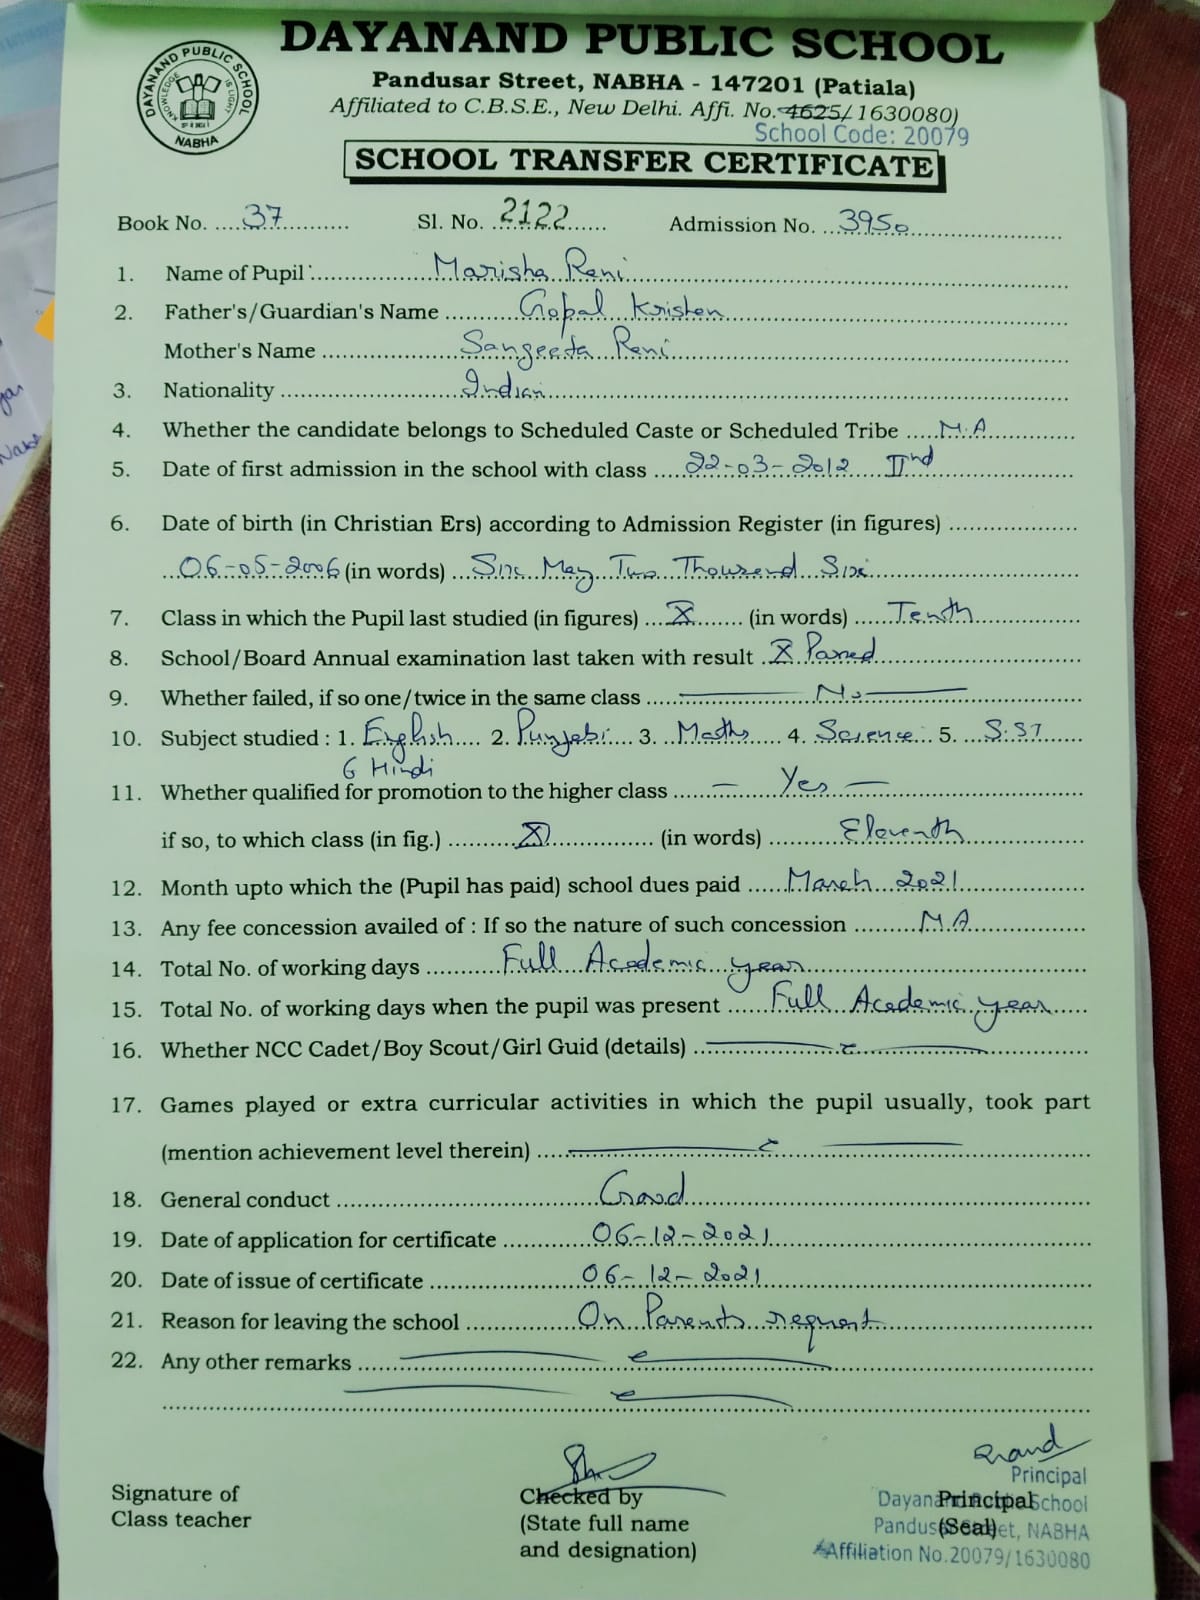 DAYANAND PUBLIC SCHOOL
Pandusar Street, NABHA - 147201 (Patiala)
Affiliated to C.B.S.E., New Delhi. Affi. No. 4625/1630080)
School Code: 20079
DAYANAND PUBLIC SCHOOL
KNOWLEDGE IS LIGHT
NABHA
SCHOOL TRANSFER CERTIFICATE
Book No. 37 Sl. No. 2122 Admission No. 3950
1. Name of Pupil Marisha Rani
2. Father's/Guardian's Name Gopal Krishan
Mother's Name Sangeeta Rani
3. Nationality Indian
4. Whether the candidate belongs to Scheduled Caste or Scheduled Tribe N.A
5. Date of first admission in the school with class 22-03-2012 IInd
6. Date of birth (in Christian Ers) according to Admission Register (in figures)
06-05-2006 (in words) Six May Two Thousand Six
7. Class in which the Pupil last studied (in figures) X (in words) Tenth
8. School/Board Annual examination last taken with result X Passed
9. Whether failed, if so one/twice in the same class No
10. Subject studied : 1. English 2. Punjabi 3. Maths 4. Science 5. S.ST
6 Hindi
11. Whether qualified for promotion to the higher class — Yes —
if so, to which class (in fig.) XI (in words) Eleventh
12. Month upto which the (Pupil has paid) school dues paid March 2021
13. Any fee concession availed of : If so the nature of such concession N.A
14. Total No. of working days Full Academic year
15. Total No. of working days when the pupil was present Full Academic year
16. Whether NCC Cadet/Boy Scout/Girl Guid (details)
17. Games played or extra curricular activities in which the pupil usually, took part
(mention achievement level therein)
18. General conduct Good
19. Date of application for certificate 06-12-2021
20. Date of issue of certificate 06-12-2021
21. Reason for leaving the school On Parents request
22. Any other remarks
Signature of
Class teacher
Checked by
(State full name
and designation)
Principal
(Seal)
Principal
Dayanand Public School
Pandusar Street, NABHA
Affiliation No.20079/1630080